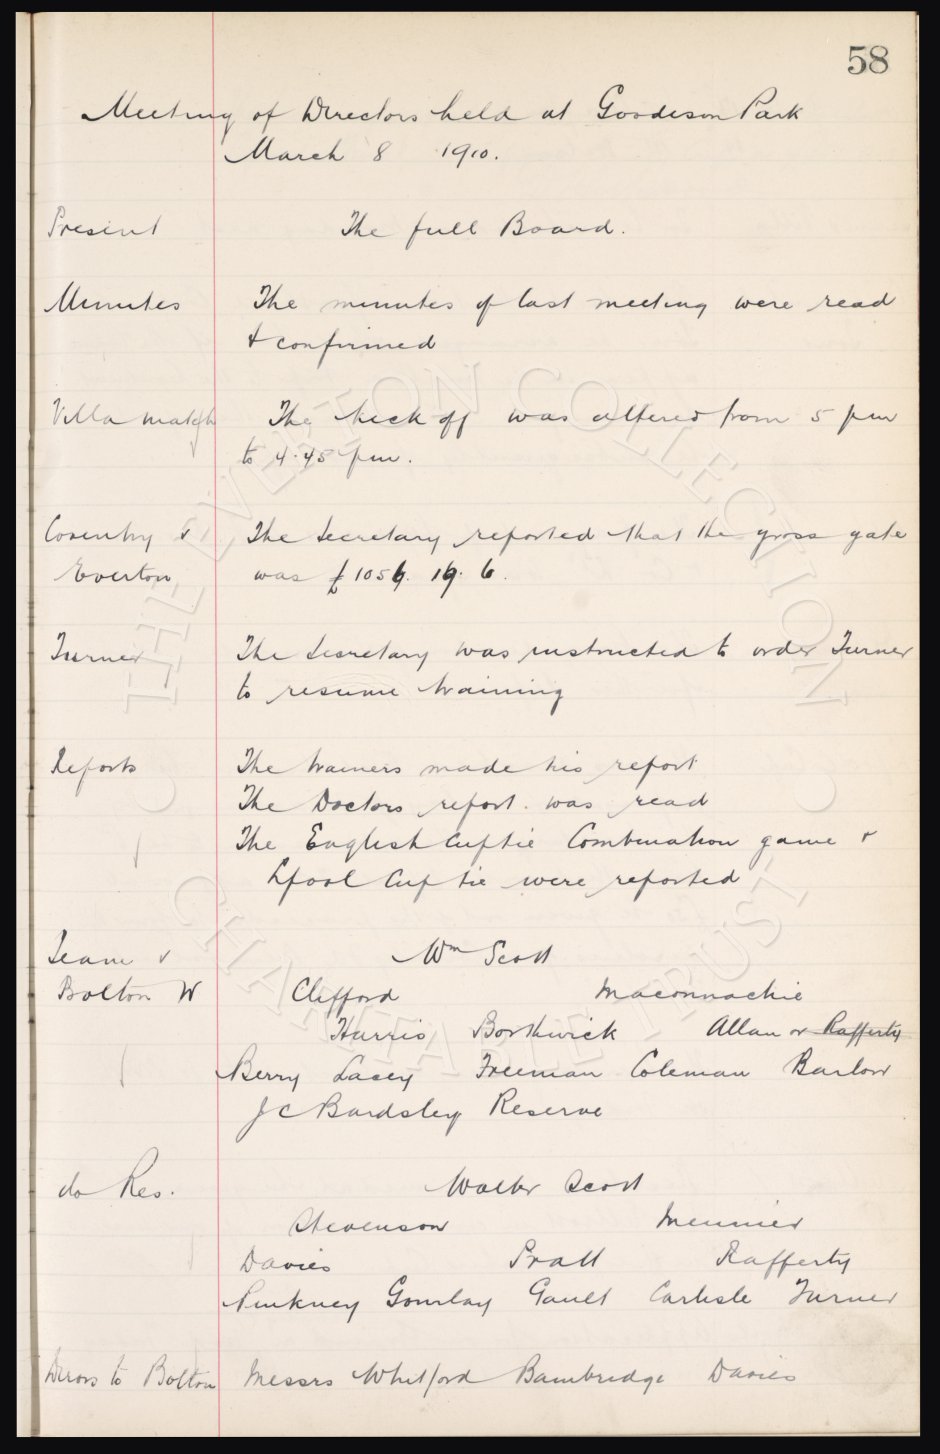 58
Meeting of Directors held at Goodison Park
March 8 1910.
Present The full Board.
Minutes The minutes of last meeting were read
& confirmed
Villa match The kick off was altered from 5 pm
to 4.45 pm.
Coventry v The Secretary reported that the gross gate
Everton was £ 1056. 19. 6.
Turner The Secretary was instructed to order Turner
to resume training
Reports The trainers made his report
The Doctors report was read
The English Cuptie Combination game &
Lpool Cup tie were reported
Team v Wm Scott
Bolton W Clifford Maconnachie
Harris Borthwick Allan or Rafferty
Berry Lacey Freeman Coleman Barlow
J C Bardsley Reserve
do Res. Walter Scott
Stevenson Meunier
Davies Pratt Rafferty
Pinkney Gourlay Gault Carlisle Turner
Dirors to Bolton Messrs Whitford Bainbridge Davies
THE EVERTON COLLECTION
CHARITABLE TRUST